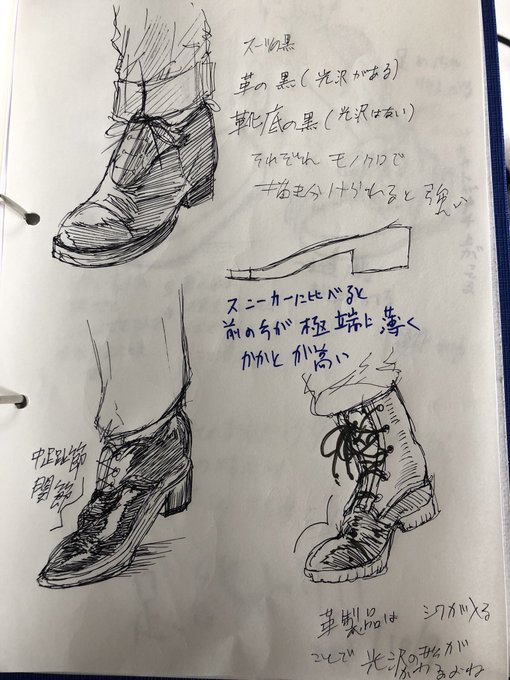 スーツの黒
革の黒(光沢がある)
靴底の黒(光沢はない)
それぞれ モノクロで
描き分けられると 強い
スニーカーに比べると
前の方が 極端に薄く
かかとが高い
中足趾節
関節
革製品は シワが入る
ことで 光沢の形が
かわるよね